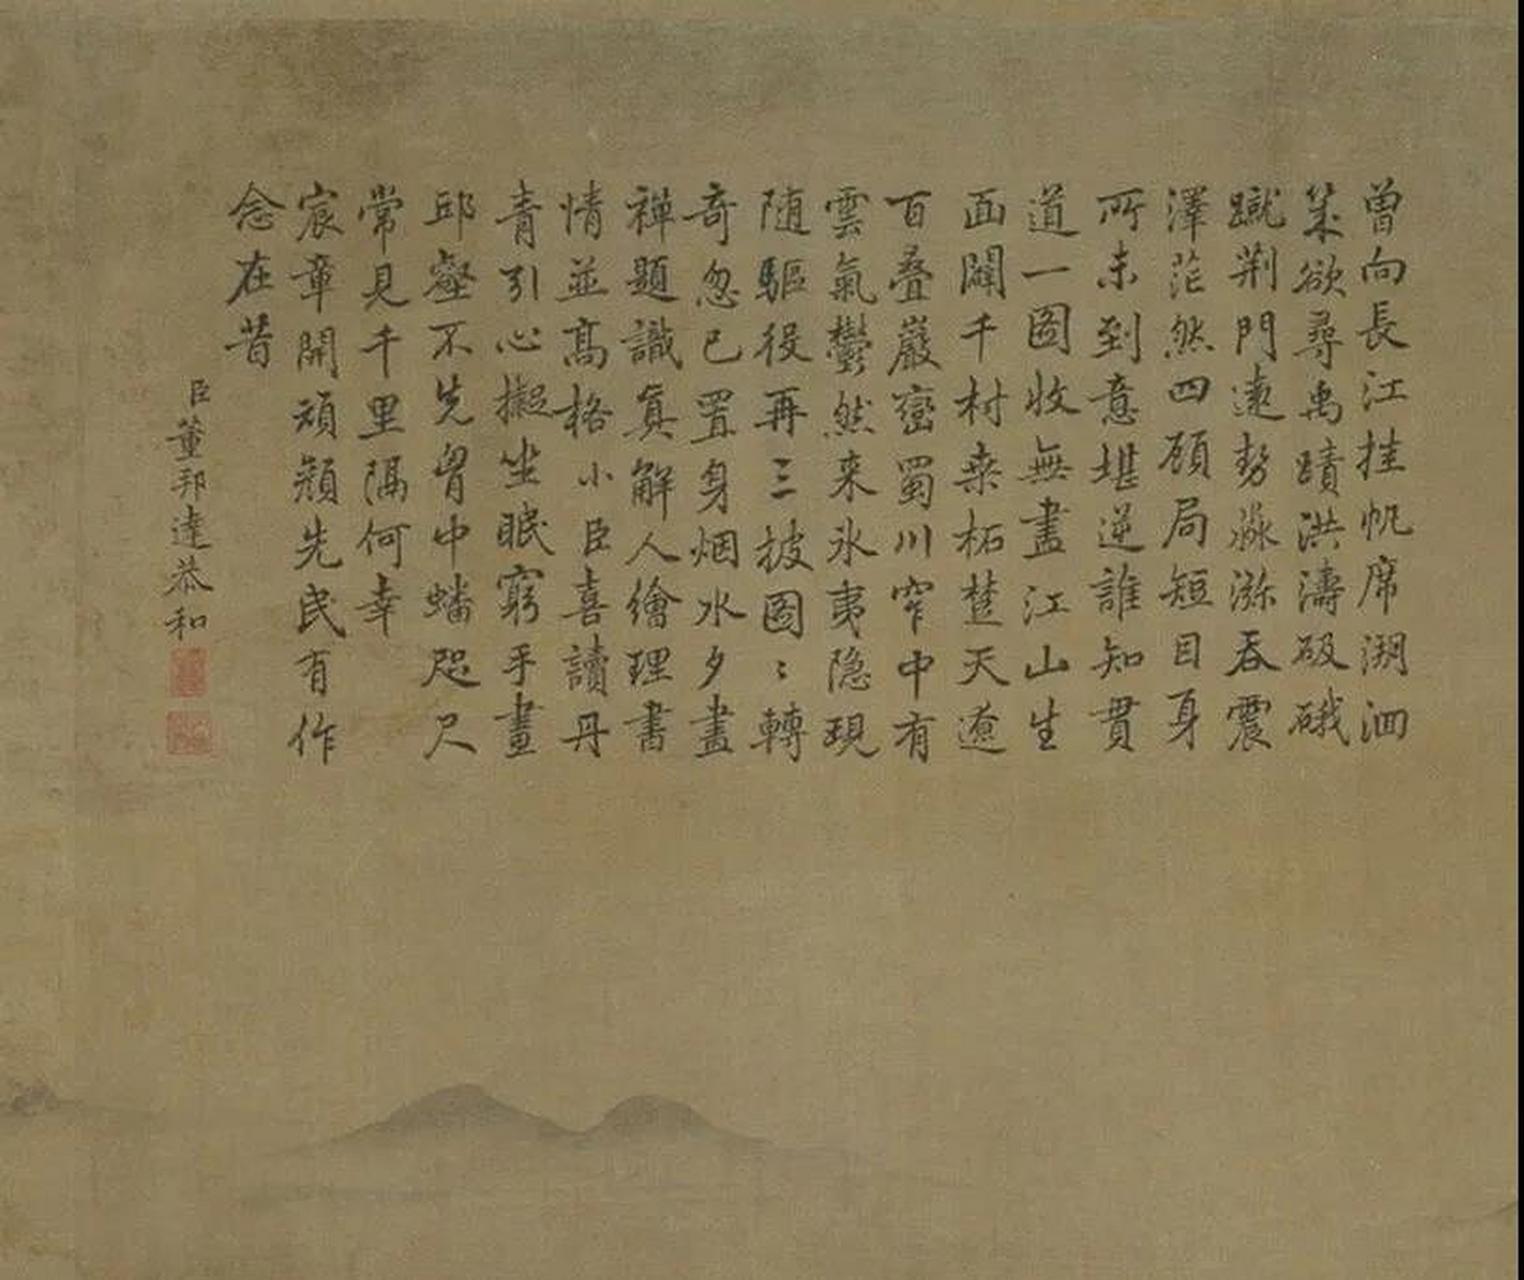 曾向長江挂帆席溯洄
策欲尋禹蹟洪濤砐硪
蹴荆門遠勢淼㳽吞震
澤茫然四顧局短目身
所未到意堪逆誰知貫
道一圖收無盡江山生
面闢千村桒柘楚天遼
百疊巖巒蜀川窄中有
雲氣鬱然来氷夷隐現
随驅役再三披圖〻轉
奇忽已置身烟水夕畫
禅題識真解人繪理書
情並髙格小臣喜讀丹
青引心擬坐眠窮手畫
邱壑不先胷中蟠咫尺
常見千里隔何幸
宸章開頑顡先民有作
念在昔
臣董邦達恭和